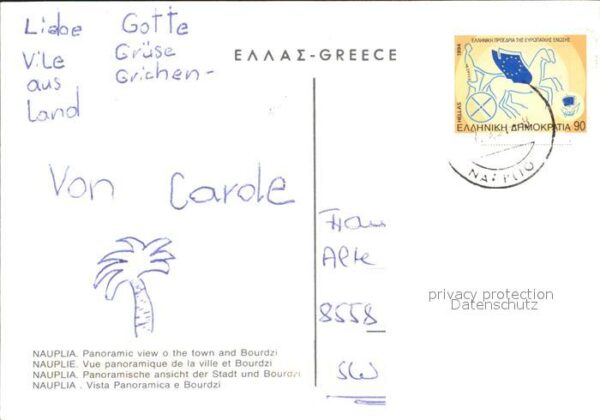 Liebe Gotte
Vile Grüse
aus Grichen-
land
Von Carole
ΕΛΛΑΣ-GREECE
ΕΛΛΗΝΙΚΗ ΠΡΟΕΔΡΙΑ ΤΗΣ ΕΥΡΩΠΑΪΚΗΣ ΕΝΩΣΗΣ
1994
HELLAS
ΕΛΛΗΝΙΚΗ ΔΗΜΟΚΡΑΤΙΑ 90
ΝΑΥΠΛΙΟ
Frau
Alte
8558
privacy protection
Datenschutz
NAUPLIA. Panoramic view o the town and Bourdzi
NAUPLIE. Vue panoramique de la ville et Bourdzi
NAUPLIA. Panoramische ansicht der Stadt und Bourdzi
NAUPLIA . Vista Panoramica e Bourdzi